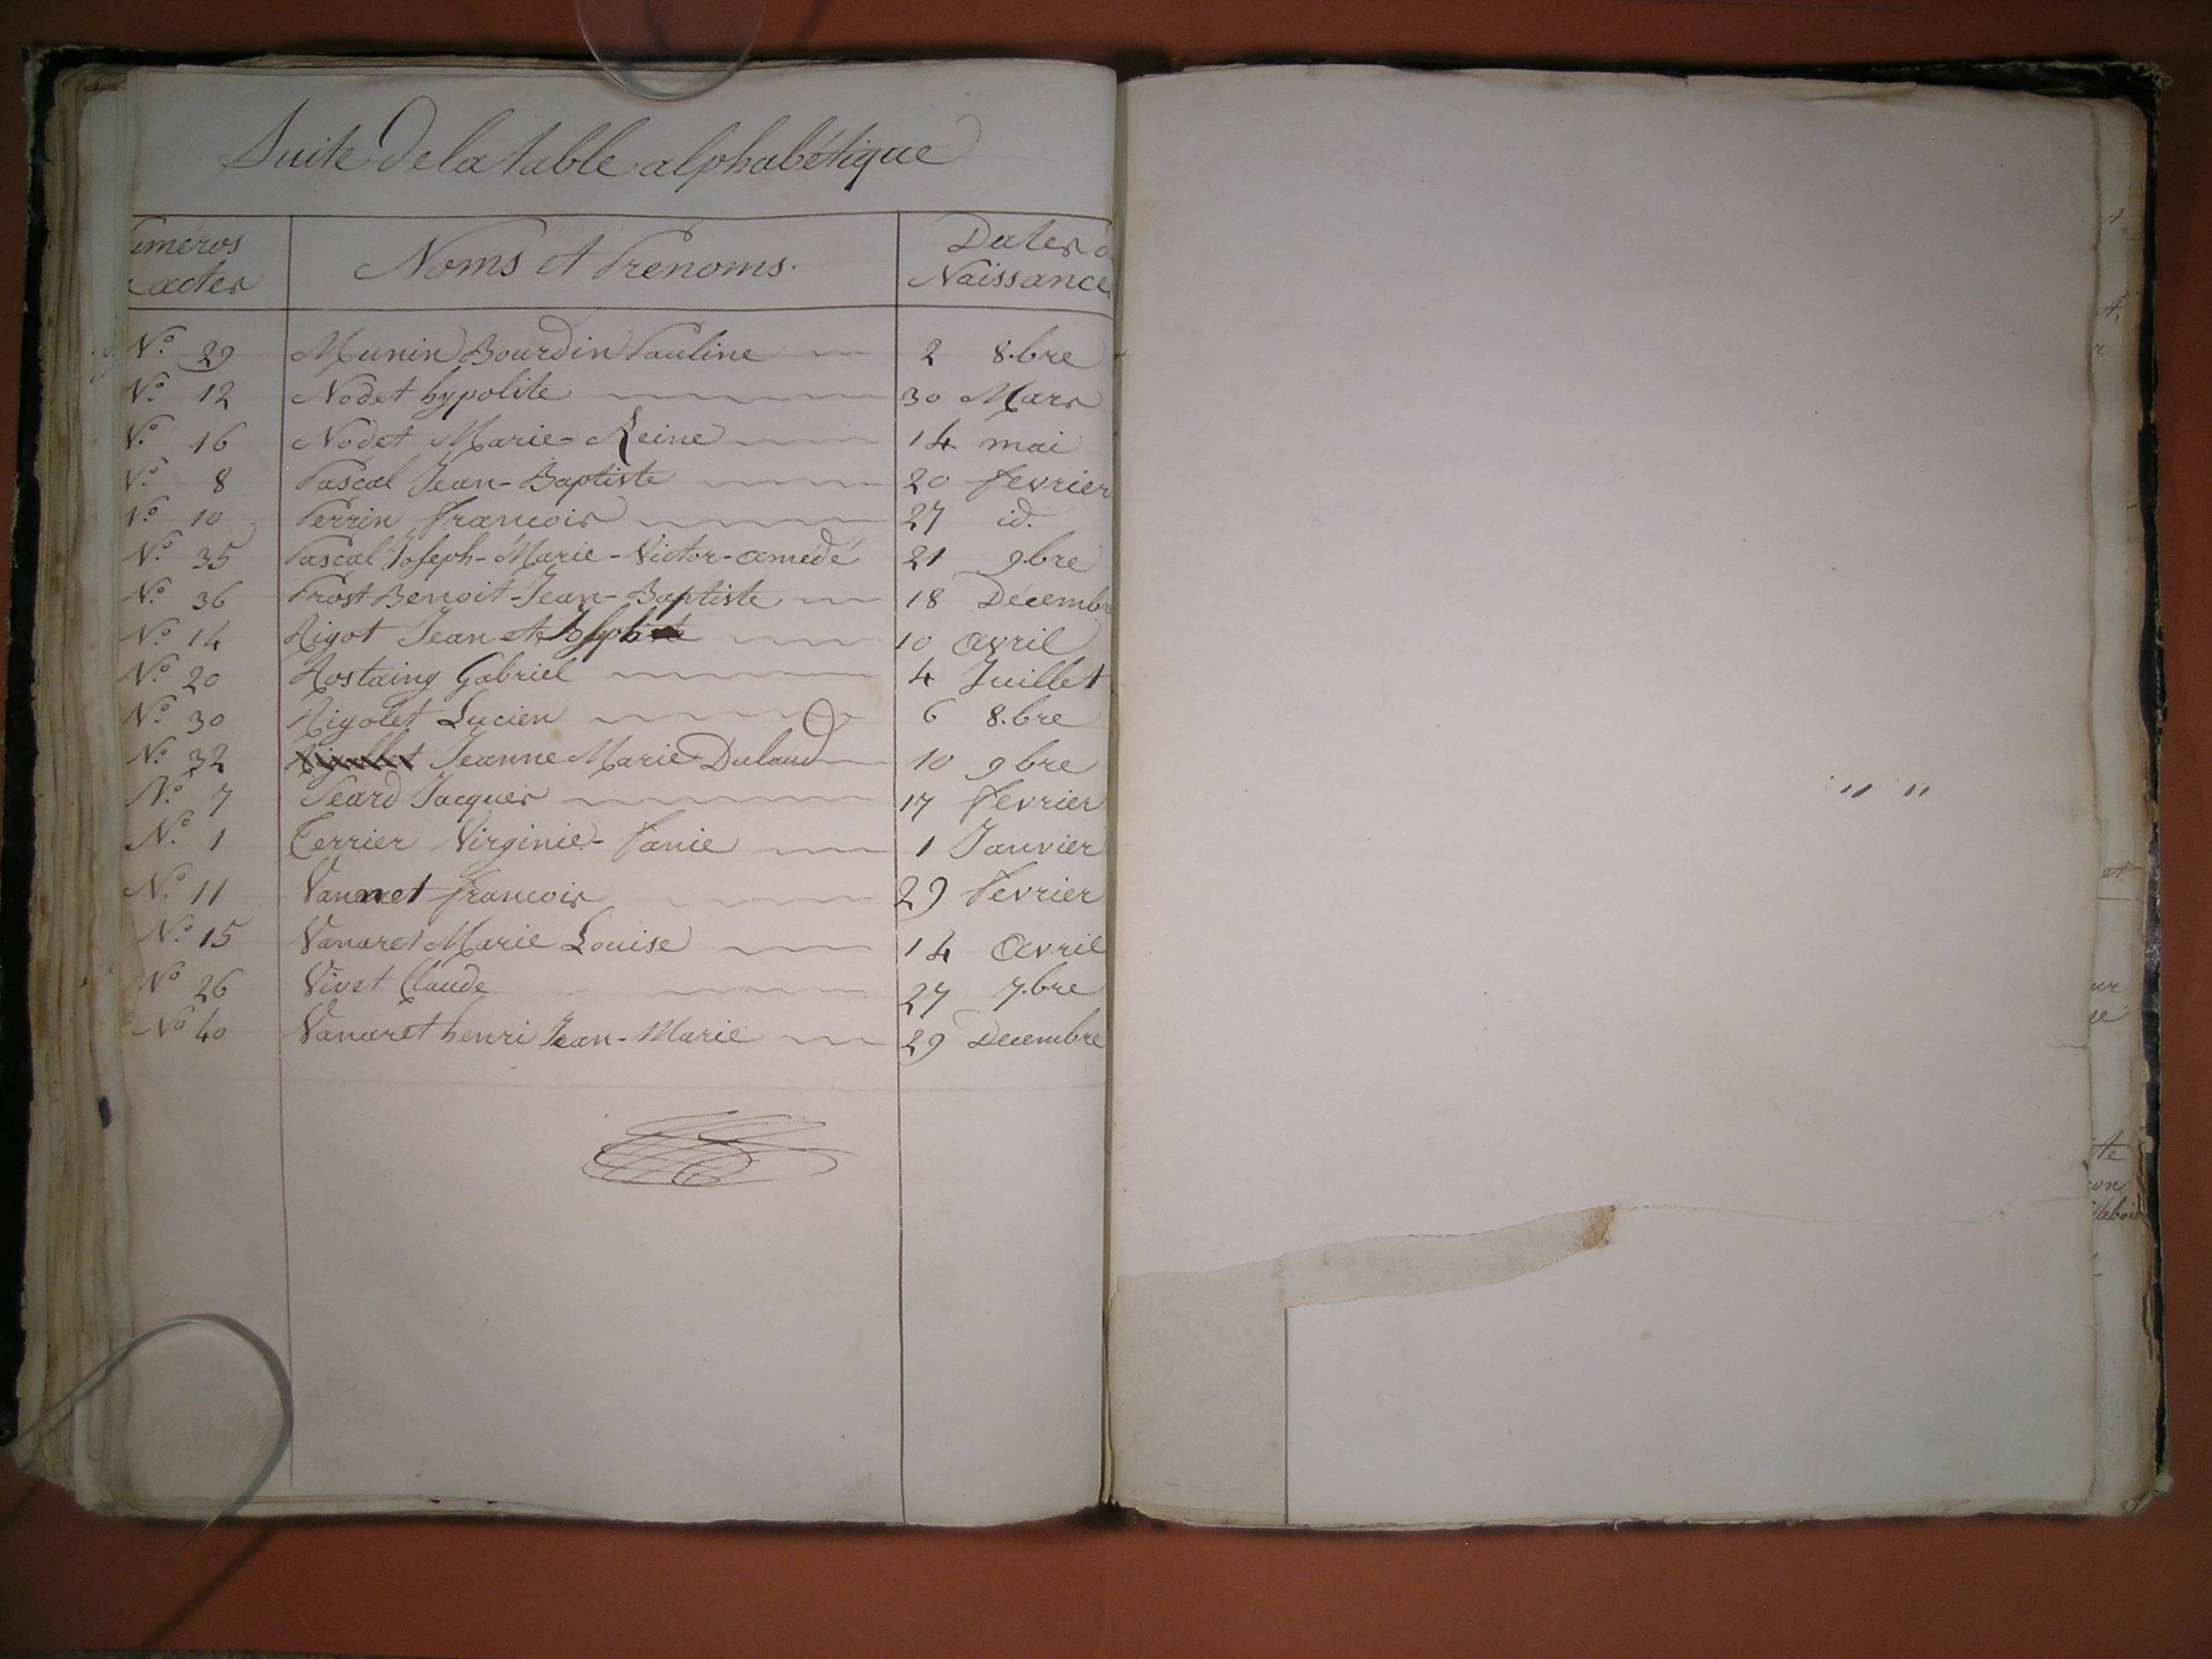 Suite de la table alphabétique
uméros Noms et Prenoms. Dates d
actes Naissance
N.o 29 Munin Bourdin Pauline 2 8.bre
N.o 12 Nodet hypolite 30 Mars
N.o 16 Nodet Marie-Reine 14 mai
N.o 8 Pascal Jean-Baptiste 20 fevrier
N.o 10 Perrin francois 27 id.
N.o 35 Pascal Joseph-Marie-Victor-amédé 21 9.bre
N.o 36 Prost Benoit-Jean-Baptiste 18 Décembr
N.o 14 Rigot Jean 10 avril
N.o 20 Rostaing Gabriel 4 Juillet
N.o 30 Rigolet Lucien 6 8.bre
N.o 32 Rigollet Jeanne Marie Dulaud 10 9bre
N.o 7 Seard Jacques 17 fevrier
N.o 1 Terrier Virginie-Fanie 1 Janvier
N.o 11 francois 29 fevrier
N.o 15 Vanaret Marie Louise 14 Avril
No 26 Vivet Claude 27 7.bre
No 40 Vanaret henri Jean-Marie 29 Decembre